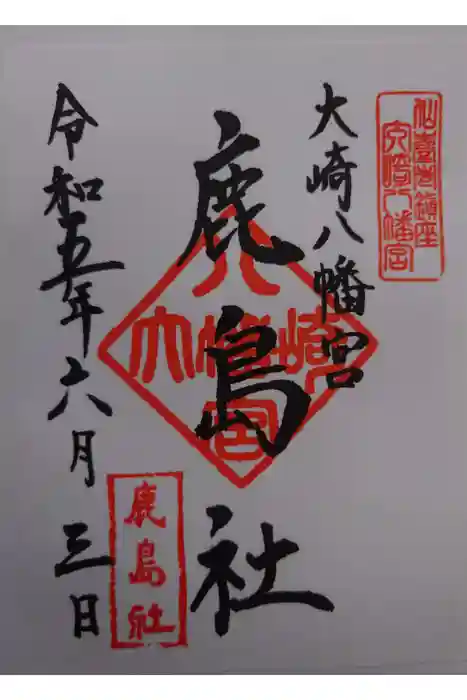 仙臺鎮座
大崎八幡宮
大崎八幡宮
鹿島社
大崎八幡宮
鹿島社
令和五年六月三日